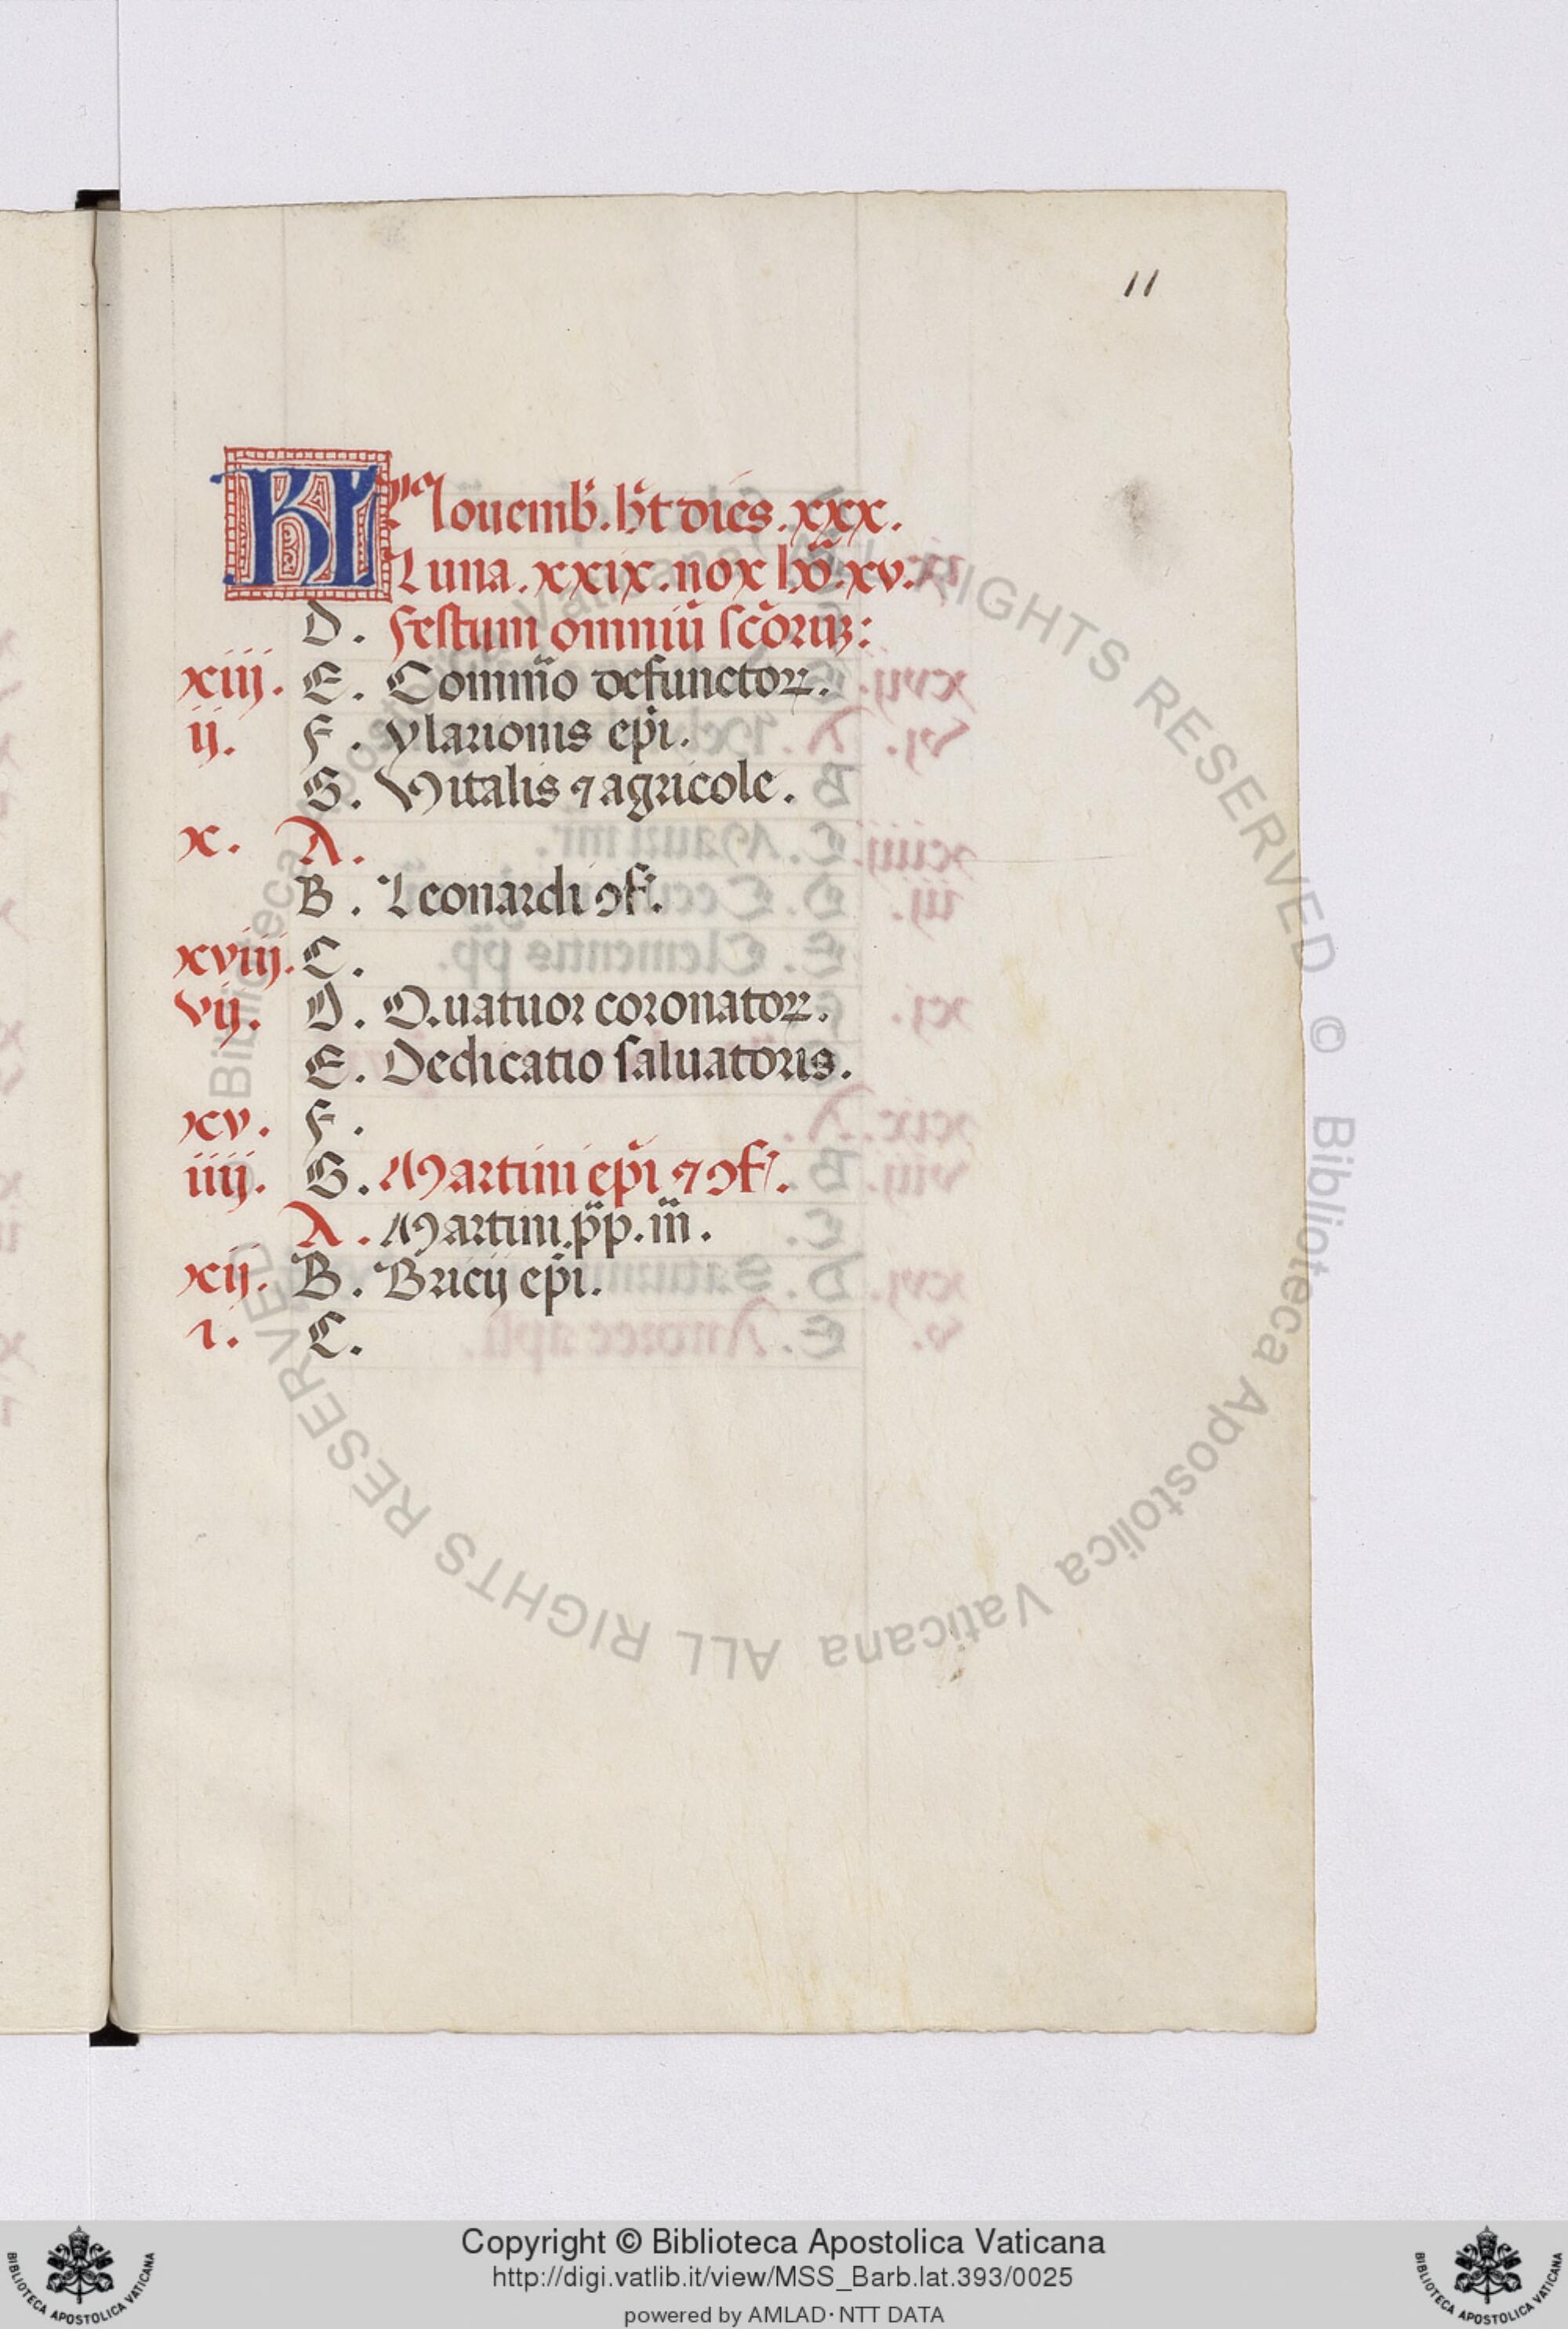 11
Kl Nouemb̃. h̃t dies. xxx.
Luna. xxix. nox hõ. xv.
D. Festum omniũ sc̃oruʒ:
xiij. E. Comm̃o defunctoꝝ.
ij. F. ylarionis ep̃i.
G. Vitalis ⁊ agricole.
x. A.
B. Leonardi ꝯf̃.
xviij. C.
vij. D. Quatuor coronatoꝝ.
E. Dedicatio saluatoris.
xv. F.
iiij. G. Martini ep̃i ⁊ ꝯf̃.
A. Martini. p̃p. m̃.
xij. B. Bricij ep̃i.
i. C.
Biblioteca Apostolica Vaticana ALL RIGHTS RESERVED © Biblioteca Apostolica Vaticana ALL RIGHTS RESERVED
Copyright © Biblioteca Apostolica Vaticana
http://digi.vatlib.it/view/MSS_Barb.lat.393/0025
powered by AMLAD·NTT DATA
BIBLIOTECA APOSTOLICA VATICANA
BIBLIOTECA APOSTOLICA VATICANA